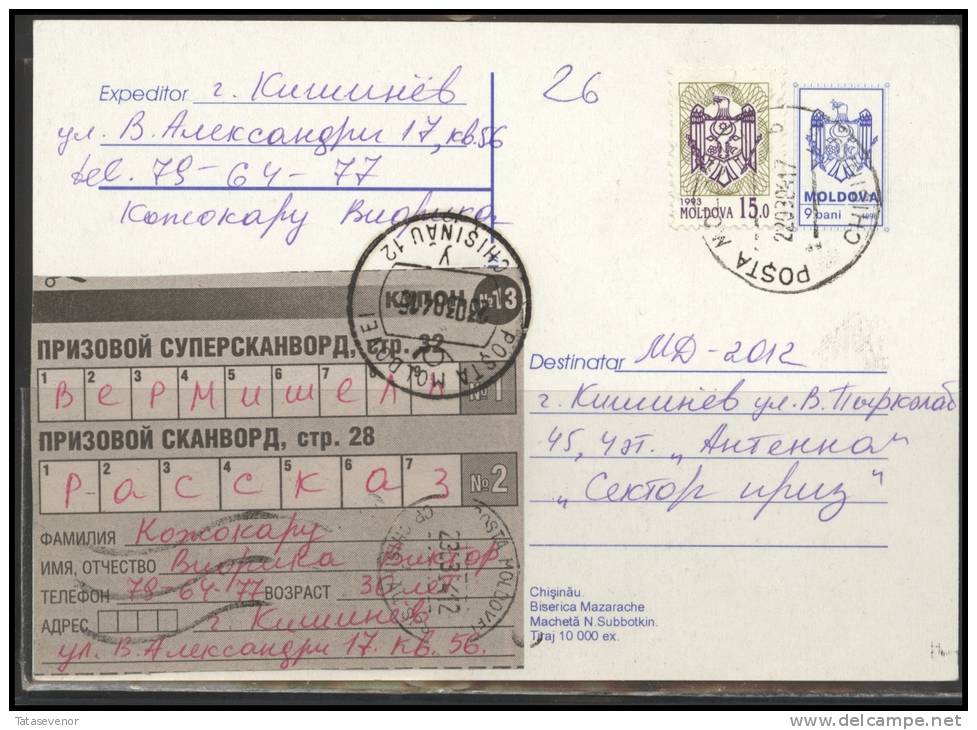 Expeditor г. Кишинёв
ул. В. Александри 17, кв. 56
tel. 79-64-77
Кожокару Виорика
26
1993
MOLDOVA 15.0
MOLDOVA
9 bani
POȘTA MOLDOVEI
CHIȘINĂU 12
КУПОН №13
ПРИЗОВОЙ СУПЕРСКАНВОРД, стр. 32
1 2 3 4 5 6 7 8 9
В е р м и ш е л ь №1
ПРИЗОВОЙ СКАНВОРД, стр. 28
1 2 3 4 5 6 7
Р а с с к а з №2
ФАМИЛИЯ Кожокару
ИМЯ, ОТЧЕСТВО Виорика Виктор
ТЕЛЕФОН 79-64-77 ВОЗРАСТ 30 лет
АДРЕС г. Кишинёв
ул. В. Александри 17. кв. 56.
Destinatar МД-2012
г. Кишинёв ул. В. Пыркэлаб
45, 4 эт. „Антенна"
„Сектор приз"
Chișinău.
Biserica Mazarache
Machetă N.Subbotkin.
Tiraj 10 000 ex.
Tatasevenor
www.delcampe.net